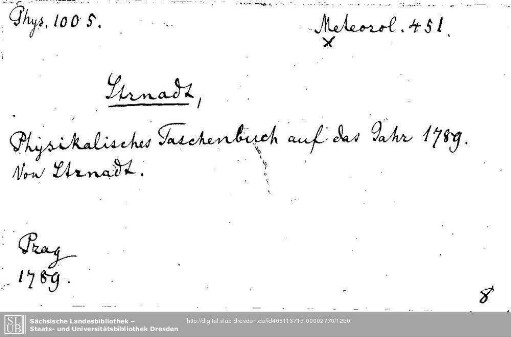 Phys. 1005.
Meteorol. 451.
x
Strnadt,
Physikalisches Taschenbuch auf das Jahr 1789.
Von Strnadt.
Prag
1789.
8
SLUB
Sächsische Landesbibliothek –
Staats- und Universitätsbibliothek Dresden